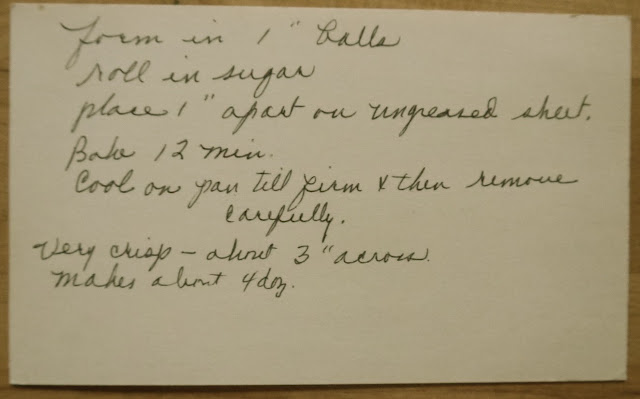 form in 1" balls
roll in sugar
place 1" apart on ungreased sheet.
Bake 12 min.
Cool on pan till firm & then remove
carefully.
Very crisp - about 3" across.
Makes about 4 doz.